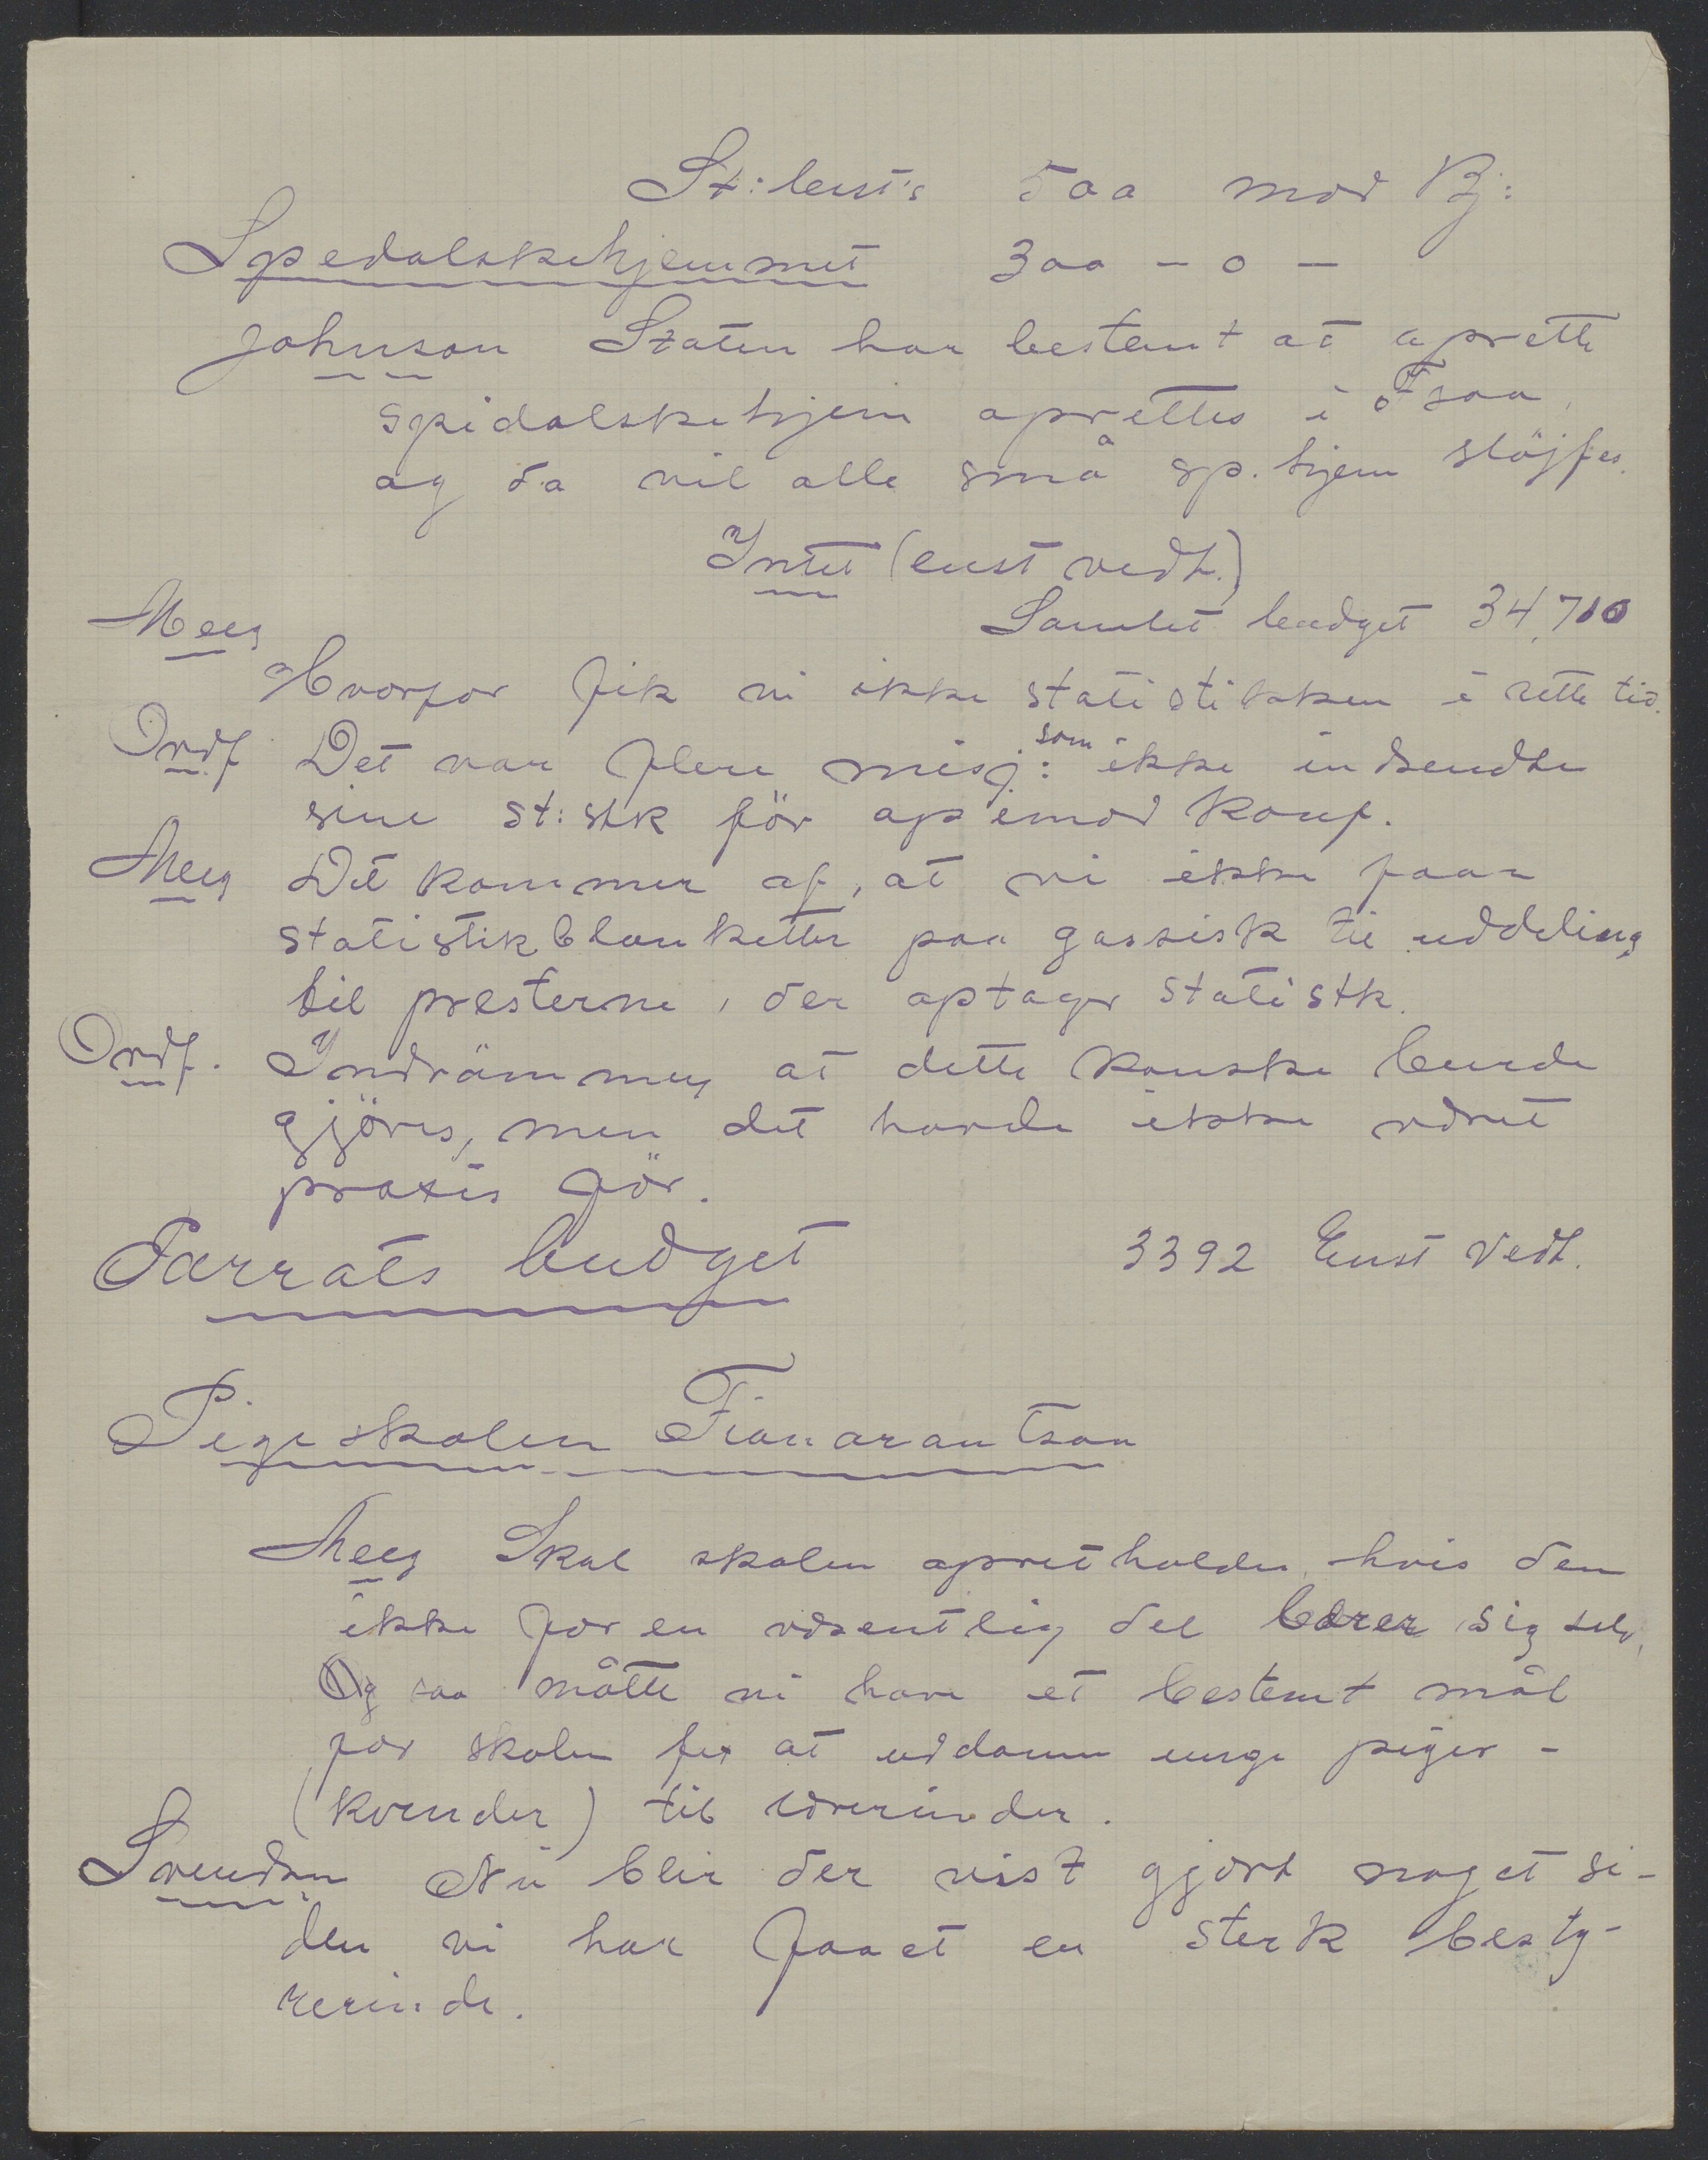 St: best's 500 mod Bj:
Spedalskehjemmet 300 - 0 -
Johnson Staten har bestemt at oprette
spedalskehjem oprettes i Fsoa,
og da vil alle små sp. hjem slöjfes.
Intet (enst vedt.)
Samlet budget 34,710
Meeg
Hvorfor fik vi ikke statistikken i rette tid.
Ordf Det var flere misj: som ikke indsendte
sine st:stk för op imod Konf.
Meeg Det kommer af, at vi ikke faar
statistikblanketter paa gassisk til uddeling
til presterne, der optager statistk.
Ordf. Indrömmer at dette kanske burde
gjöres, men det havde ikke været
praxis för.
Farrats budget 3392 Enst Vedt.
Pigeskolen Fianarantsoa
Meeg Skal skolen opretholdes, hvis den
ikke for en væsentlig del bærer sig selv,
Og saa måtte vi have et bestemt mål
for skolen fex at uddanne unge piger -
(kvinder) til lærerinder.
Svendsen Nu blir der vist gjort noget si-
den vi har faaet en sterk besty-
rerinde.